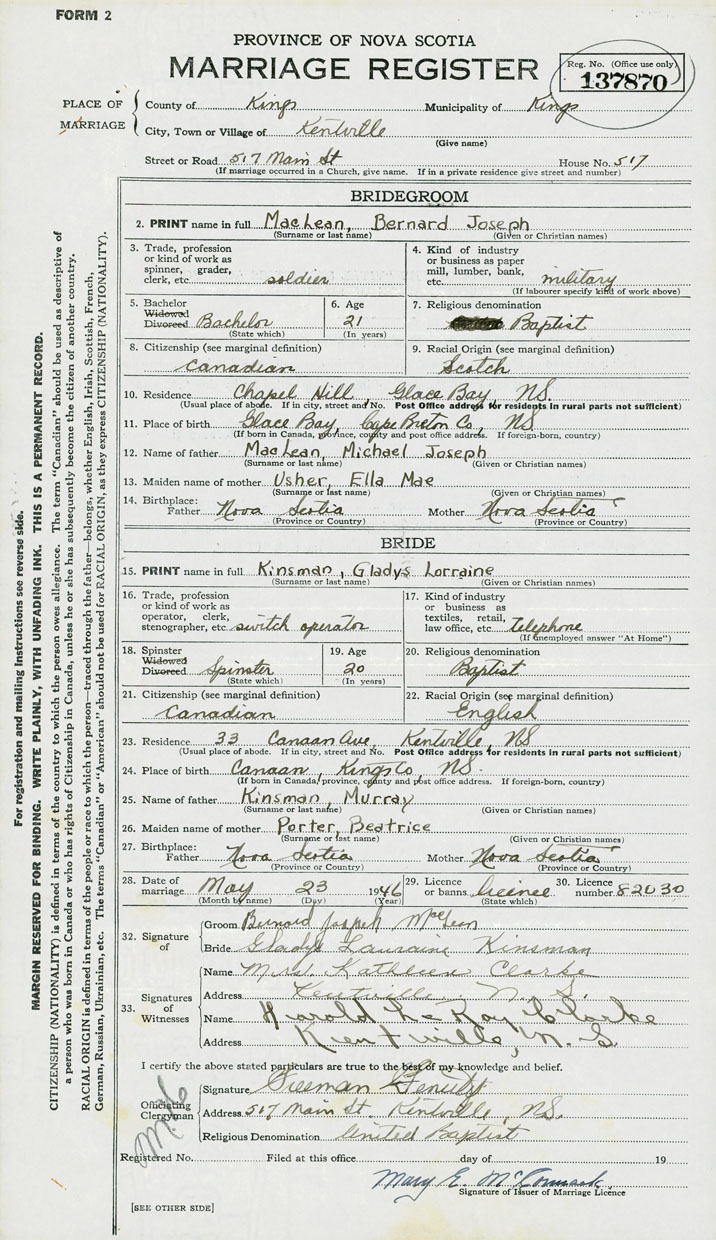 FORM 2
PROVINCE OF NOVA SCOTIA
MARRIAGE REGISTER
Reg. No. (Office use only)
137870
PLACE OF MARRIAGE
County of Kings Municipality of Kings
City, Town or Village of Kentville
(Give name)
Street or Road 517 Main St House No. 517
(If marriage occurred in a Church, give name. If in a private residence give street and number)
BRIDEGROOM
2. PRINT name in full MacLean, Bernard Joseph
(Surname or last name) (Given or Christian names)
3. Trade, profession or kind of work as spinner, grader, clerk, etc. soldier
4. Kind of industry or business as paper mill, lumber, bank, etc. military
(If labourer specify kind of work above)
5. Bachelor Widowed Divorced Bachelor
(State which)
6. Age 21
(In years)
7. Religious denomination Baptist
8. Citizenship (see marginal definition) Canadian
9. Racial Origin (see marginal definition) Scotch
10. Residence Chapel Hill, Glace Bay, NS.
(Usual place of abode. If in city, street and No. Post Office address for residents in rural parts not sufficient)
11. Place of birth Glace Bay, Cape Breton Co, NS
(If born in Canada, province, county and post office address. If foreign-born, country)
12. Name of father MacLean, Michael Joseph
(Surname or last name) (Given or Christian names)
13. Maiden name of mother Usher, Ella Mae
(Surname or last name) (Given or Christian names)
14. Birthplace: Father Nova Scotia Mother Nova Scotia
(Province or Country) (Province or Country)
BRIDE
15. PRINT name in full Kinsman, Gladys Lorraine
(Surname or last name) (Given or Christian names)
16. Trade, profession or kind of work as operator, clerk, stenographer, etc. switch operator
17. Kind of industry or business as textiles, retail, law office, etc. telephone
(If unemployed answer "At Home")
18. Spinster Widowed Divorced Spinster
(State which)
19. Age 20
(In years)
20. Religious denomination Baptist
21. Citizenship (see marginal definition) Canadian
22. Racial Origin (see marginal definition) English
23. Residence 33 Canaan Ave, Kentville, NS
(Usual place of abode. If in city, street and No. Post Office address for residents in rural parts not sufficient)
24. Place of birth Canaan, Kings Co, NS.
(If born in Canada, province, county and post office address. If foreign-born, country)
25. Name of father Kinsman, Murray
(Surname or last name) (Given or Christian names)
26. Maiden name of mother Porter, Beatrice
(Surname or last name) (Given or Christian names)
27. Birthplace: Father Nova Scotia Mother Nova Scotia
(Province or Country) (Province or Country)
28. Date of marriage May 23 1946
(Month by name) (Day) (Year)
29. Licence or banns licence
(State which)
30. Licence number 82030
32. Signature of
Groom Bernard Joseph MacLean
Bride Gladys Lauraine Kinsman
33. Signatures of Witnesses
Name Mrs. Kathleen Clarke
Address Kentville, N. S.
Name Harold Le Roy Clarke
Address Kentville, N. S.
I certify the above stated particulars are true to the best of my knowledge and belief.
Officiating Clergyman
Signature Freeman
Address 517 Main St. Kentville, NS.
Religious Denomination United Baptist
Registered No. Filed at this office day of 19
Mary E. McCormack
Signature of Issuer of Marriage Licence
[SEE OTHER SIDE]
For registration and mailing instructions see reverse side.
MARGIN RESERVED FOR BINDING. WRITE PLAINLY, WITH UNFADING INK. THIS IS A PERMANENT RECORD.
CITIZENSHIP (NATIONALITY) is defined in terms of the country to which the person owes allegiance. The term "Canadian" should be used as descriptive of
a person who was born in Canada or who has rights of Citizenship in Canada, unless he or she has subsequently become the citizen of another country.
RACIAL ORIGIN is defined in terms of the people or race to which the person—traced through the father—belongs, whether English, Irish, Scottish, French,
German, Russian, Ukrainian, etc. The terms "Canadian" or "American" should not be used for RACIAL ORIGIN, as they express CITIZENSHIP (NATIONALITY).